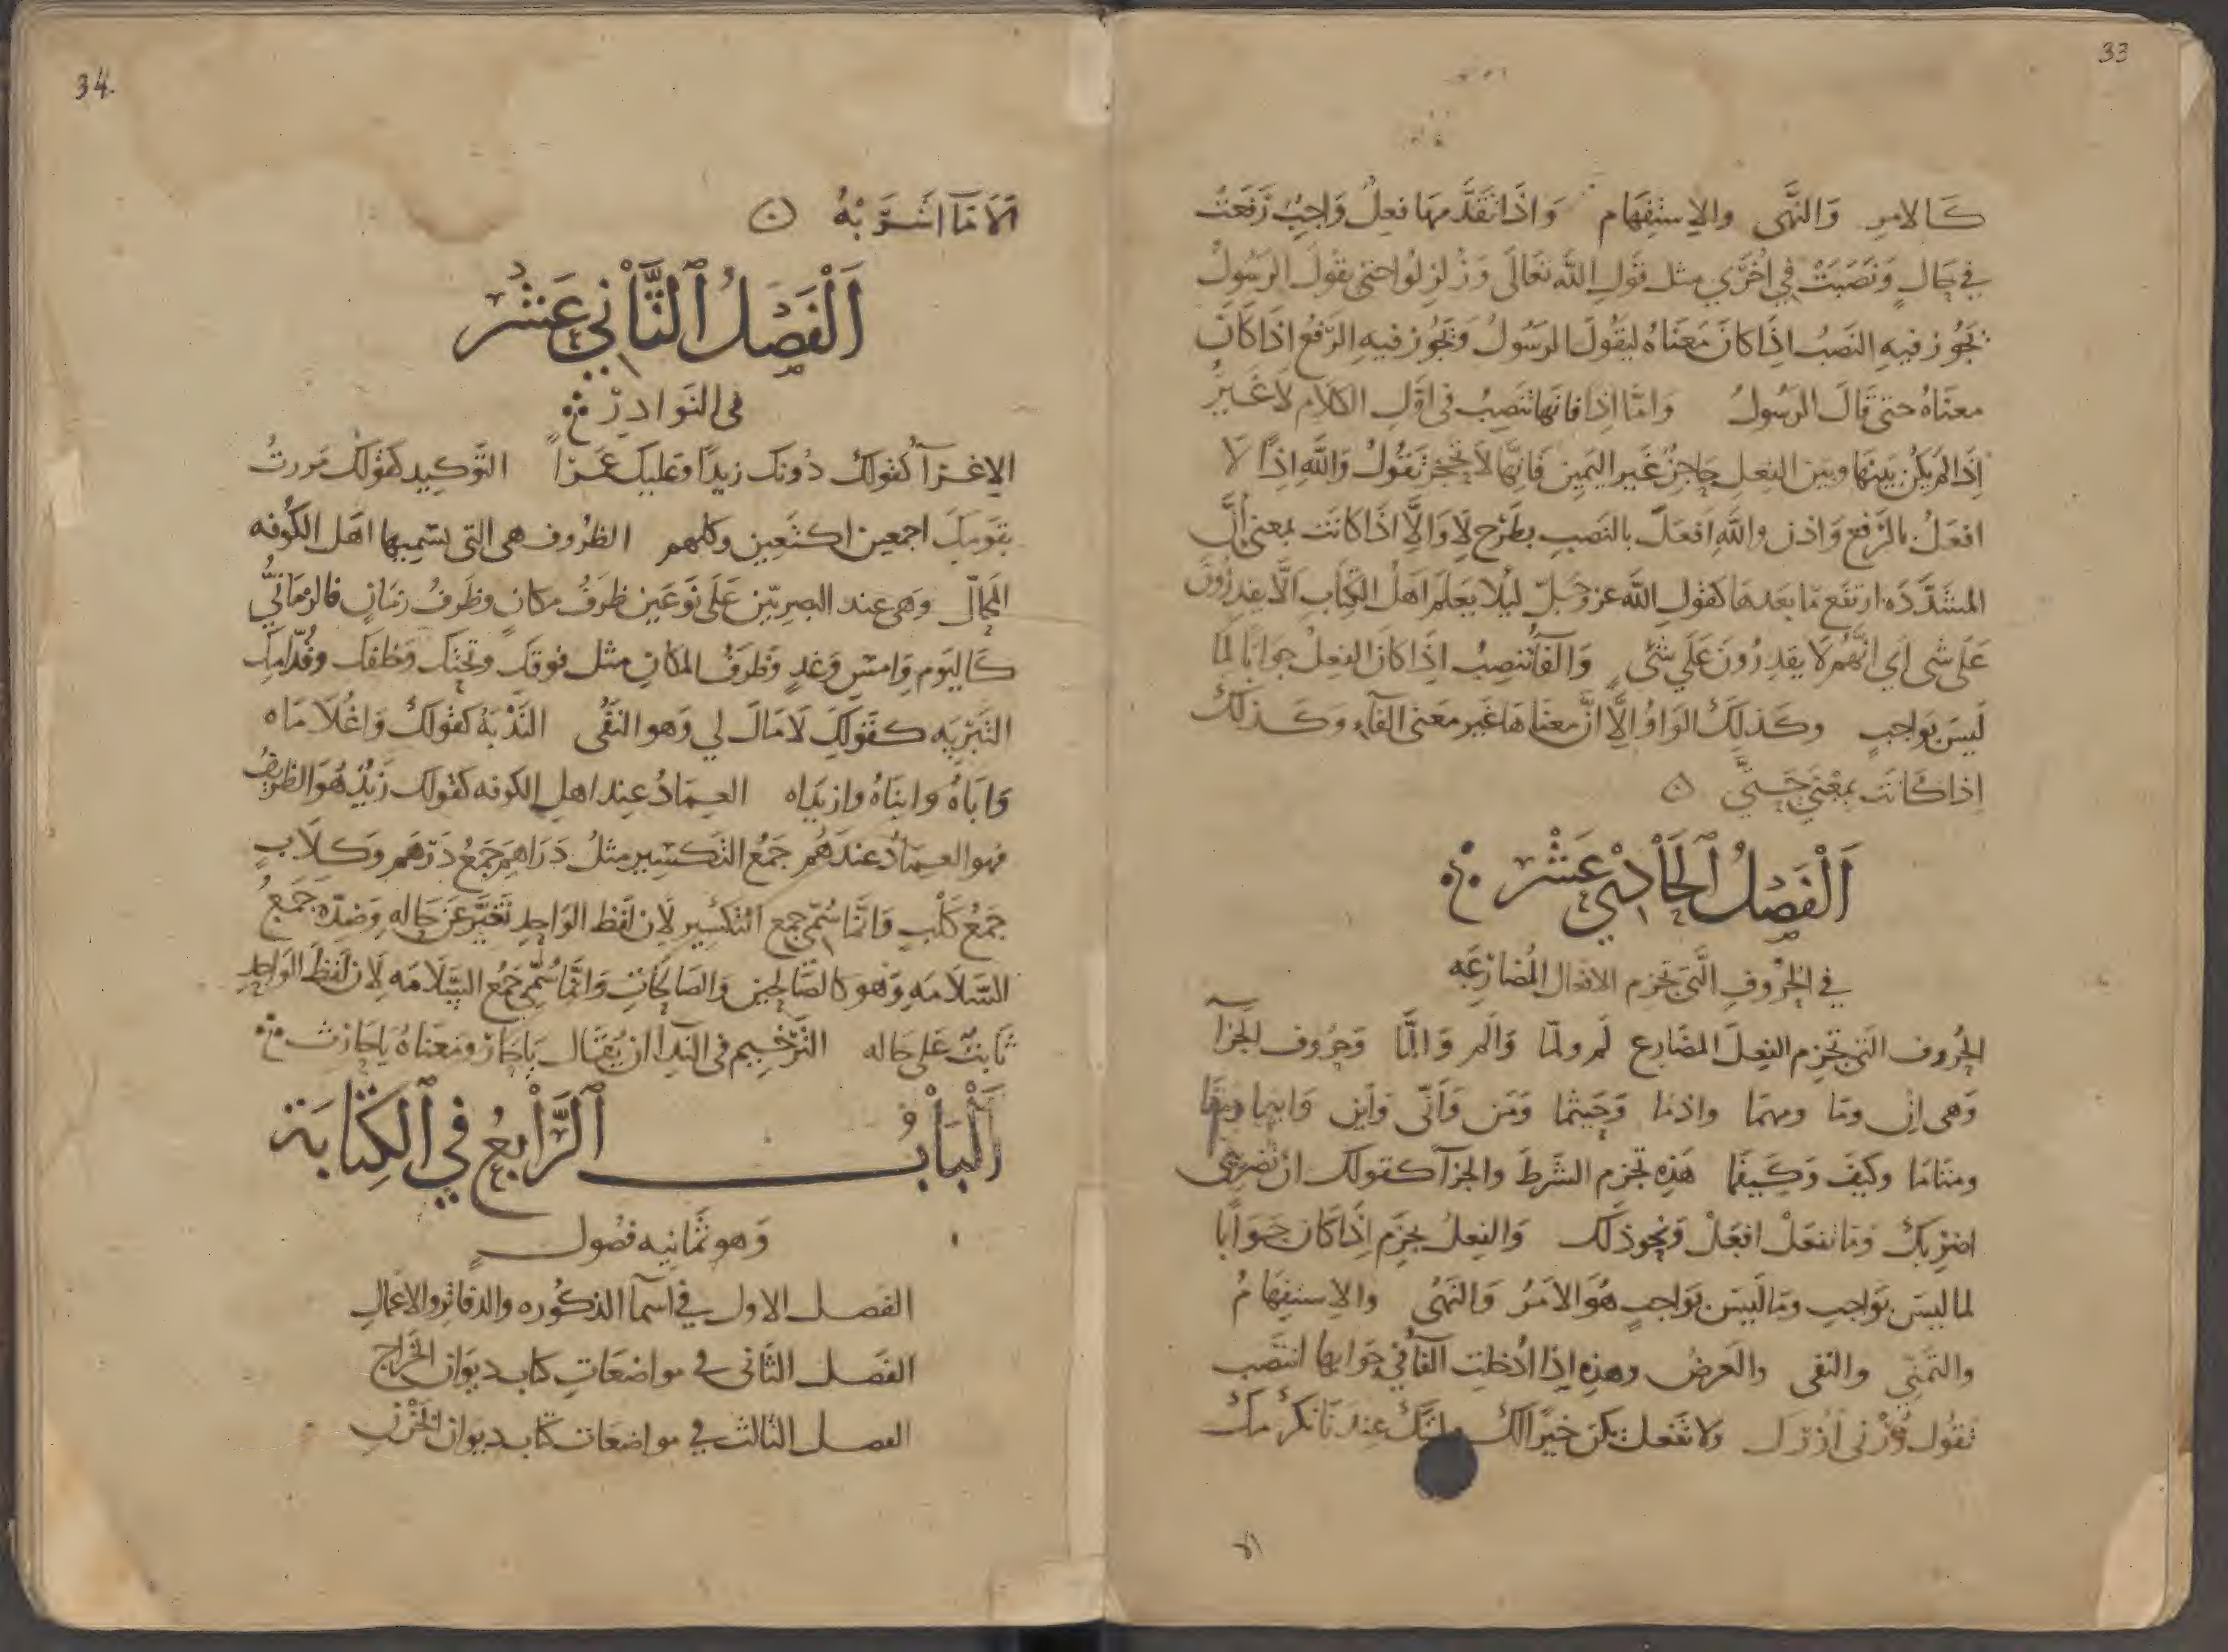 33
كَالامرِ وَالنَّهى والاِستِفهَام وَاذَا تَقَدَّمهَا فعِلٌ وَاجِبٌ رَفَعَتْ
في حَالٍ وَنَصَبَتْ في اُخْرَي مثل قَولِ اللَّه تعَالَى وَزُلزِلُوا حتى يقولَ الرسُولُ
تجُوز فيهِ النَصبُ اذَا كانَ مَعناهُ ليَقُولَ الرسُولُ وَتجُوز فيهِ الرَفعُ اذَا كَانَ
معنَاهُ حتى قَالَ الرسُولُ وَامَّا اِذا فانها تنَصِبُ فى اوّلِ الكلَامِ لَا غَيرُ
اِذَا لَم يَكُن بَينهَا وبَين الفعلِ حَاجِزٌ غَير اليَمِين فَانهَّا لَا تحجزُ تَقُولُ وَاللَّهِ اِذًا لَا
افعَلُ بالرَفعِ وَاذن واللَّهِ افعَلَ بالنَصبِ بطَرح لَا وَالَّا اذَا كانَت بمعنى اَنَّ
المشدَّدَه ارتفَع مَا بعَدهَا كقولِ اللَّه عز وَجَلّ ليَلا يَعلَم اهَلُ الكِتَابِ اَلَّا يَقدِرُونَ
عَلى شى اَي انَّهُم لَا يقدِرُونَ عَلَي شَىٍ وَالفَآ تنصِبُ اِذَا كانَ الفِعلُ جوَابًا لمِا
لَيسَ بوَاجبٍ وكَذلِكَ الوَاوُ اِلَّا انَّ معنَاهَا غَير مَعنى الفآءِ وكَذلكَ
اِذا كَانَت بمعْنَى حَتىَّ
اَلْفَصْلُ الحَادِي عَشْر
في الحُرُوفِ الَّتى تجزِم الافعَال المُضَارِعَه
الحُرُوف التى تجزِم الفِعلَ المضَارِع لَم ولمّا وَالَم وَالمَّا وَحُروف الجزَآ
وَهى اِن ومَا ومهمَا واذمَا وَحَيثما وَمَن وَاَنىّ وَاَين وَاينما ومتَى
ومتَامَا وكيَفَ وَكيفَمَا هَذِه تجزِم الشَرطَ والجزآ كقولك ان تضربنى
اضرِبكَ وَما تفعَلْ افعَلْ وَنحو ذلَك وَالفِعلُ يجزَم اِذَا كَان جَوَابًا
لما ليسَ بوَاجبٍ وَمَا لَيسَ بوَاجبٍ هُوَ الامَرُ وَالنَهىُ والاِستِفهَامُ
والتَمَنّي والنفى والعَرضُ وهذِه اِذَا ادُخلِت الفآ في جَوابها انتَصَب
تقوُل زُرْنى ازُرْكَ ولا تفعَل يَكن خيرًا لكَ
ان
34
الَا مَا اشَرَّ بهُ
اَلْفَصْلُ الثَّانِي عَشْر
فى النَوَادِر
الاِغرآ كقولكَ دُونكَ زيدًا وعَليك عَمَرًا التَوكيد كقَولك مَررتُ
بقَومِكَ اجمعين اكتَعين وكلهم الظُرُوف هى التى يسَمِيهَا اهَل الكُوفه
المَحَالّ وَهى عند البصريين عَلَى نَوعَين ظَرفُ مكانٍ وظَرفُ زمَانٍ فالزمَانيُّ
كَاليَوم وَامسِ وَغدٍ وَظَرفُ المكانِ مثل فوقك وتحَتك وَخلفَك وقُدَّامكَ
التَبرِيَه كقَولكَ لَا مَالَ لي وَهو النَفُى النُدْبَة كقولكَ وَاغُلَامَاه
وَابَاهُ وابنَاهُ وازيدَاه العِمَادُ عند اهلِ الكوفه كقولك زَيدٌ هُوَ الظريفُ
فهو العمَادُ عندَهُم جَمعُ التكسِير مثلُ دَرَاهِمَ جَمعُ دِرَهم وَكلَابٍ
جَمعُ كلْبٍ وَانمَّا سُمّى جمع التكسير لِان لَفظ الوَاحِدِ تَغيَّرَ عَن حَالهِ وَضدّه جَمعُ
السَّلامَهِ وَهو كالصَالحِين وَالصَالحَاتِ وَانمَّا سُمّى جَمعُ السَّلَامَه لِان لَفظَ الوَاحدِ
ثَابتٌ عَلى حَاله التَرخيم فى النّدا ان يُقَال يَا حَارُ ومَعنَاهُ يا حَارثُ
اَلْبَابُ الرَّابِعُ فِي الكِتَابَة
وَهو ثمَانيه فصُولٍ
الفصل الاول في اسمآ الذكُوره والدفاتر والاعمَالِ
الفصَل الثانى فى مواضعَاتِ كتاب ديوَان الخَراج
الفصل الثالث في مواضعَات كتاب ديوَان الخزنِ